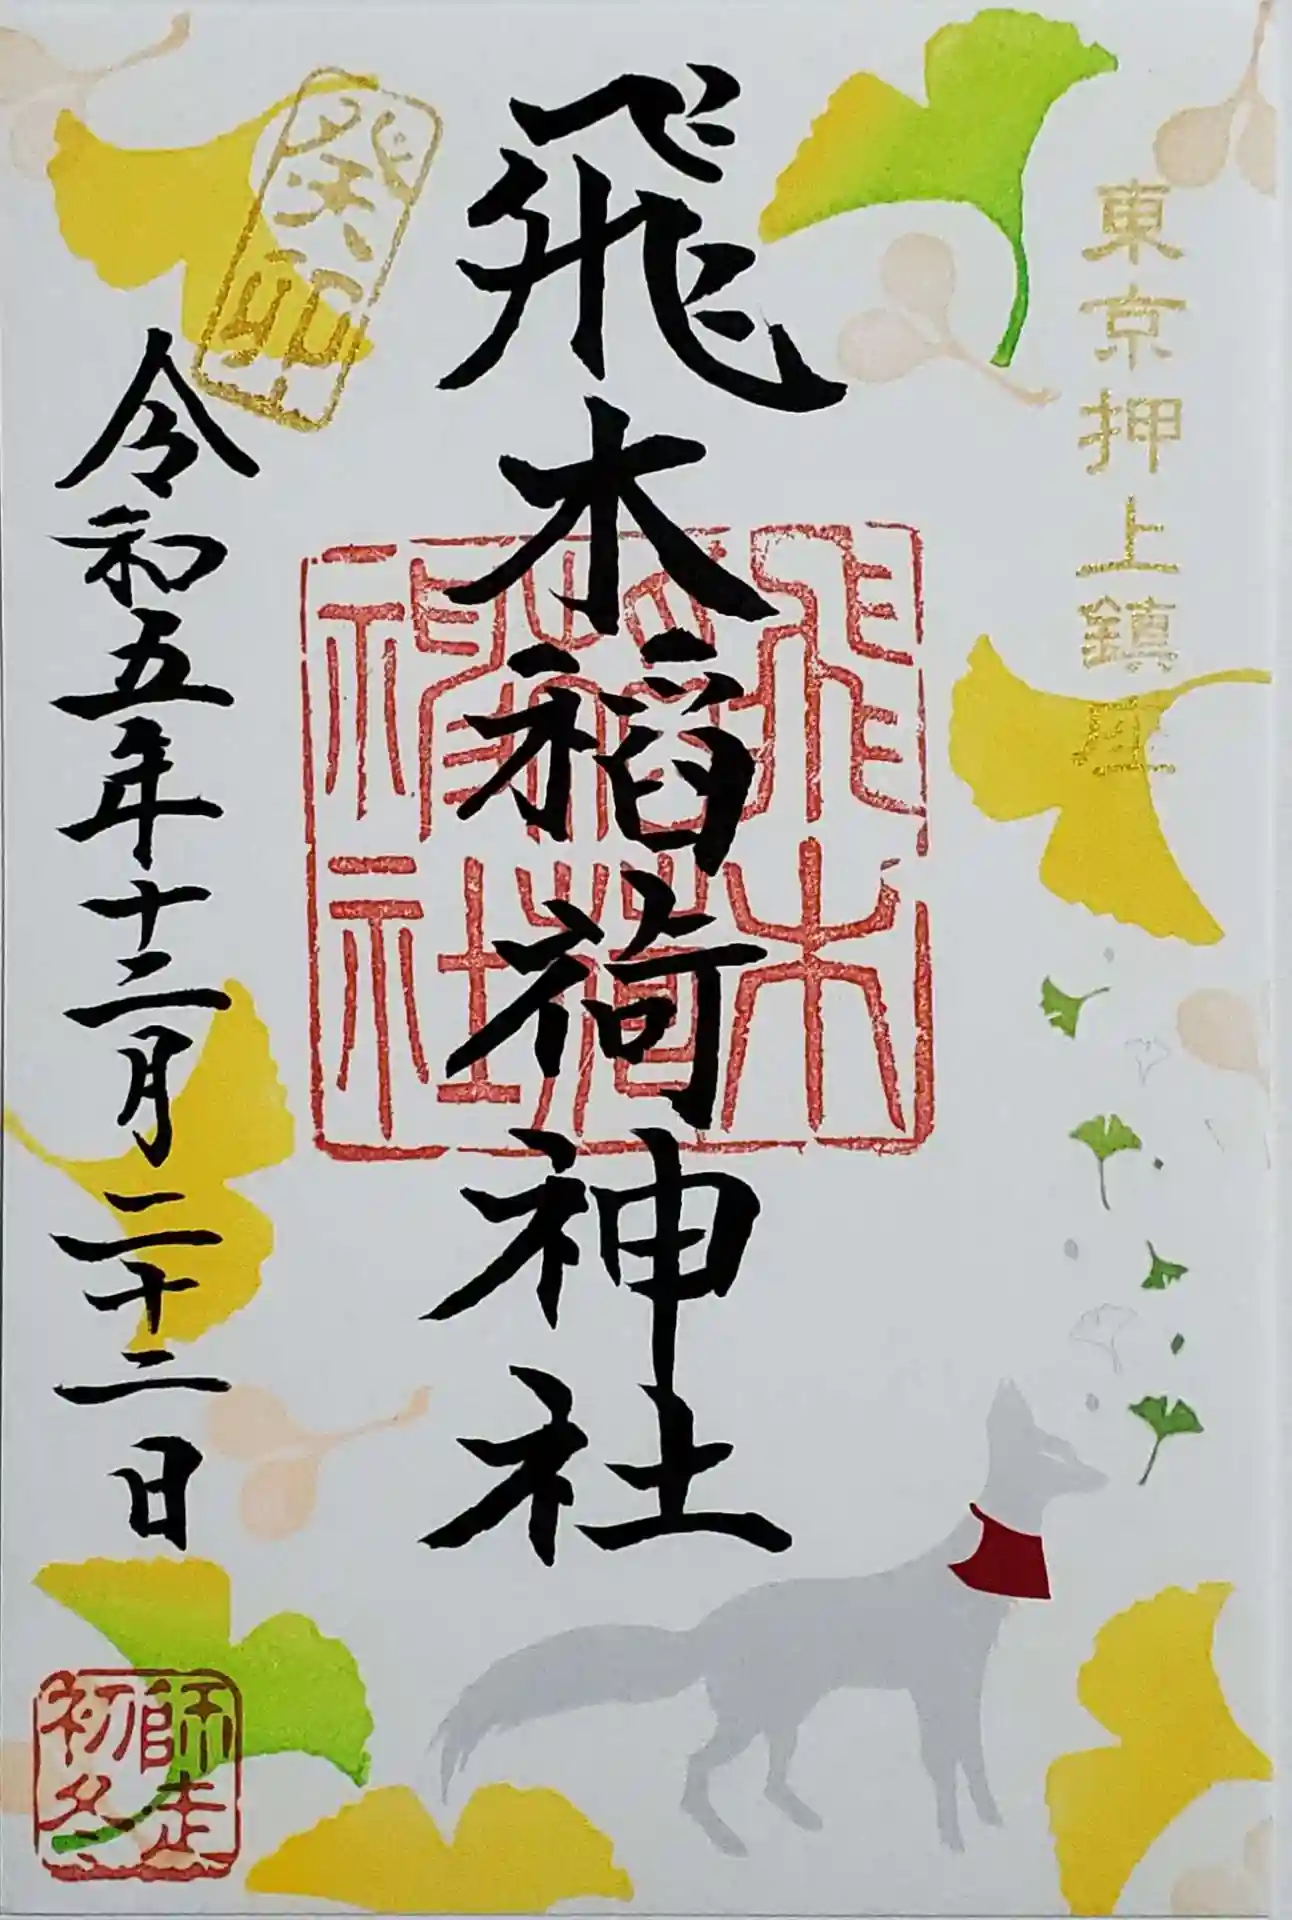 東京押上鎮座
飛木稲荷神社
飛木
稲荷
神社
癸卯
令和五年十二月二十二日
師走
初冬